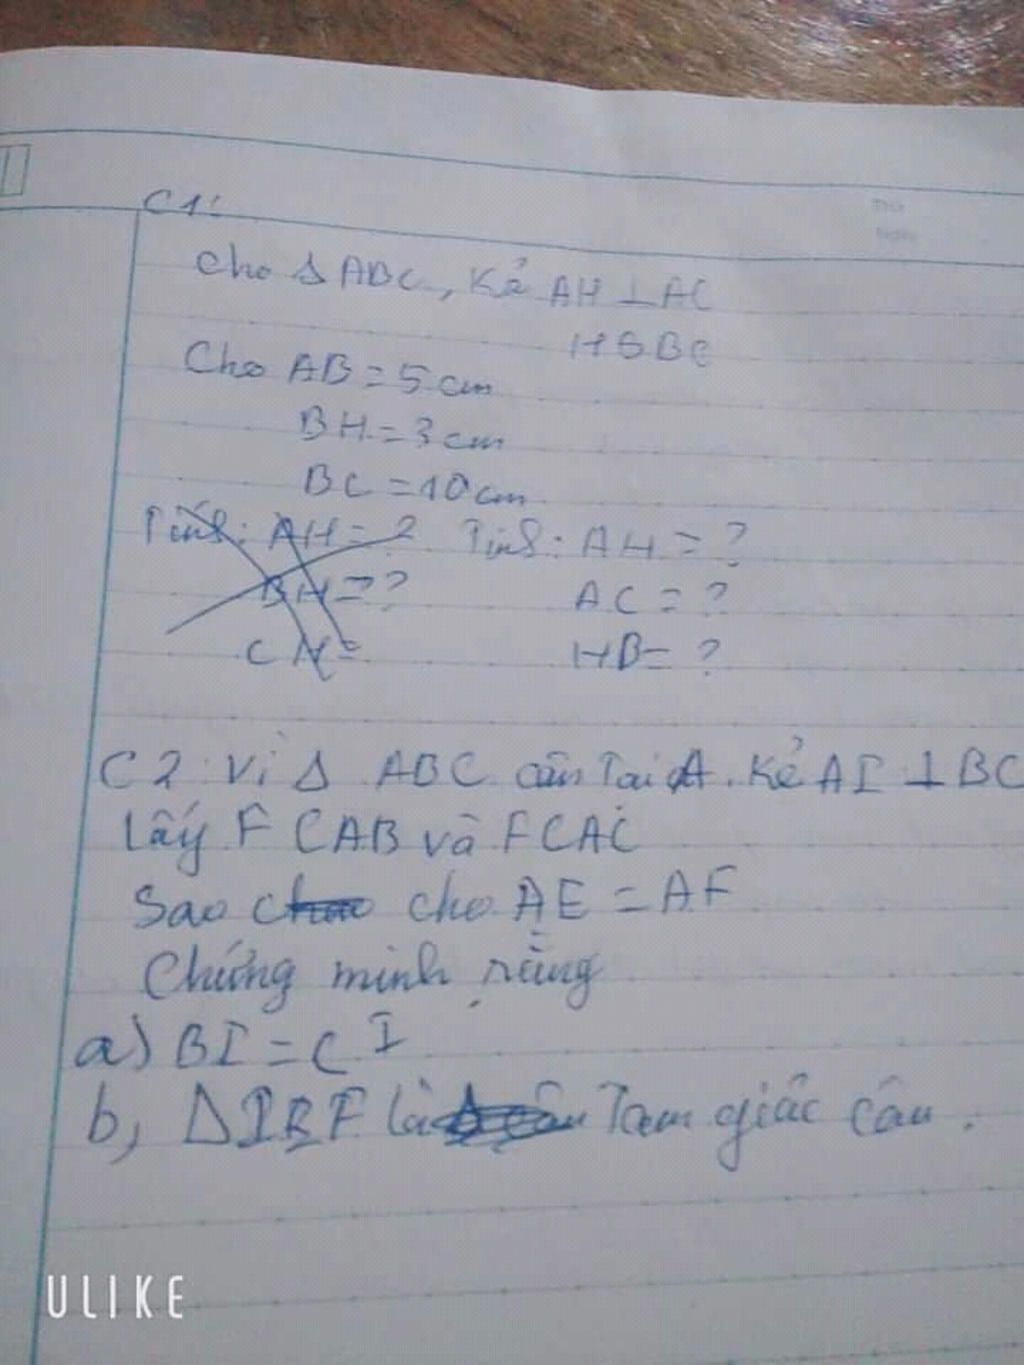 C1:
Cho Δ ABC, Kẻ AH ⊥ AC
H ϬBC
Cho AB = 5 cm
BH = 3 cm
BC = 10 cm
Tính: AH = ? Tính: AH = ?
BH = ? AC = ?
CH = HB = ?
C2: Vì Δ ABC cân Tại A. Kẻ AI ⊥ BC
Lấy F C AB và F C AC
Sao cho AE = AF
Chứng minh rằng
a) BI = CI
b, Δ IBF là Tam giác cân.
ULIKE